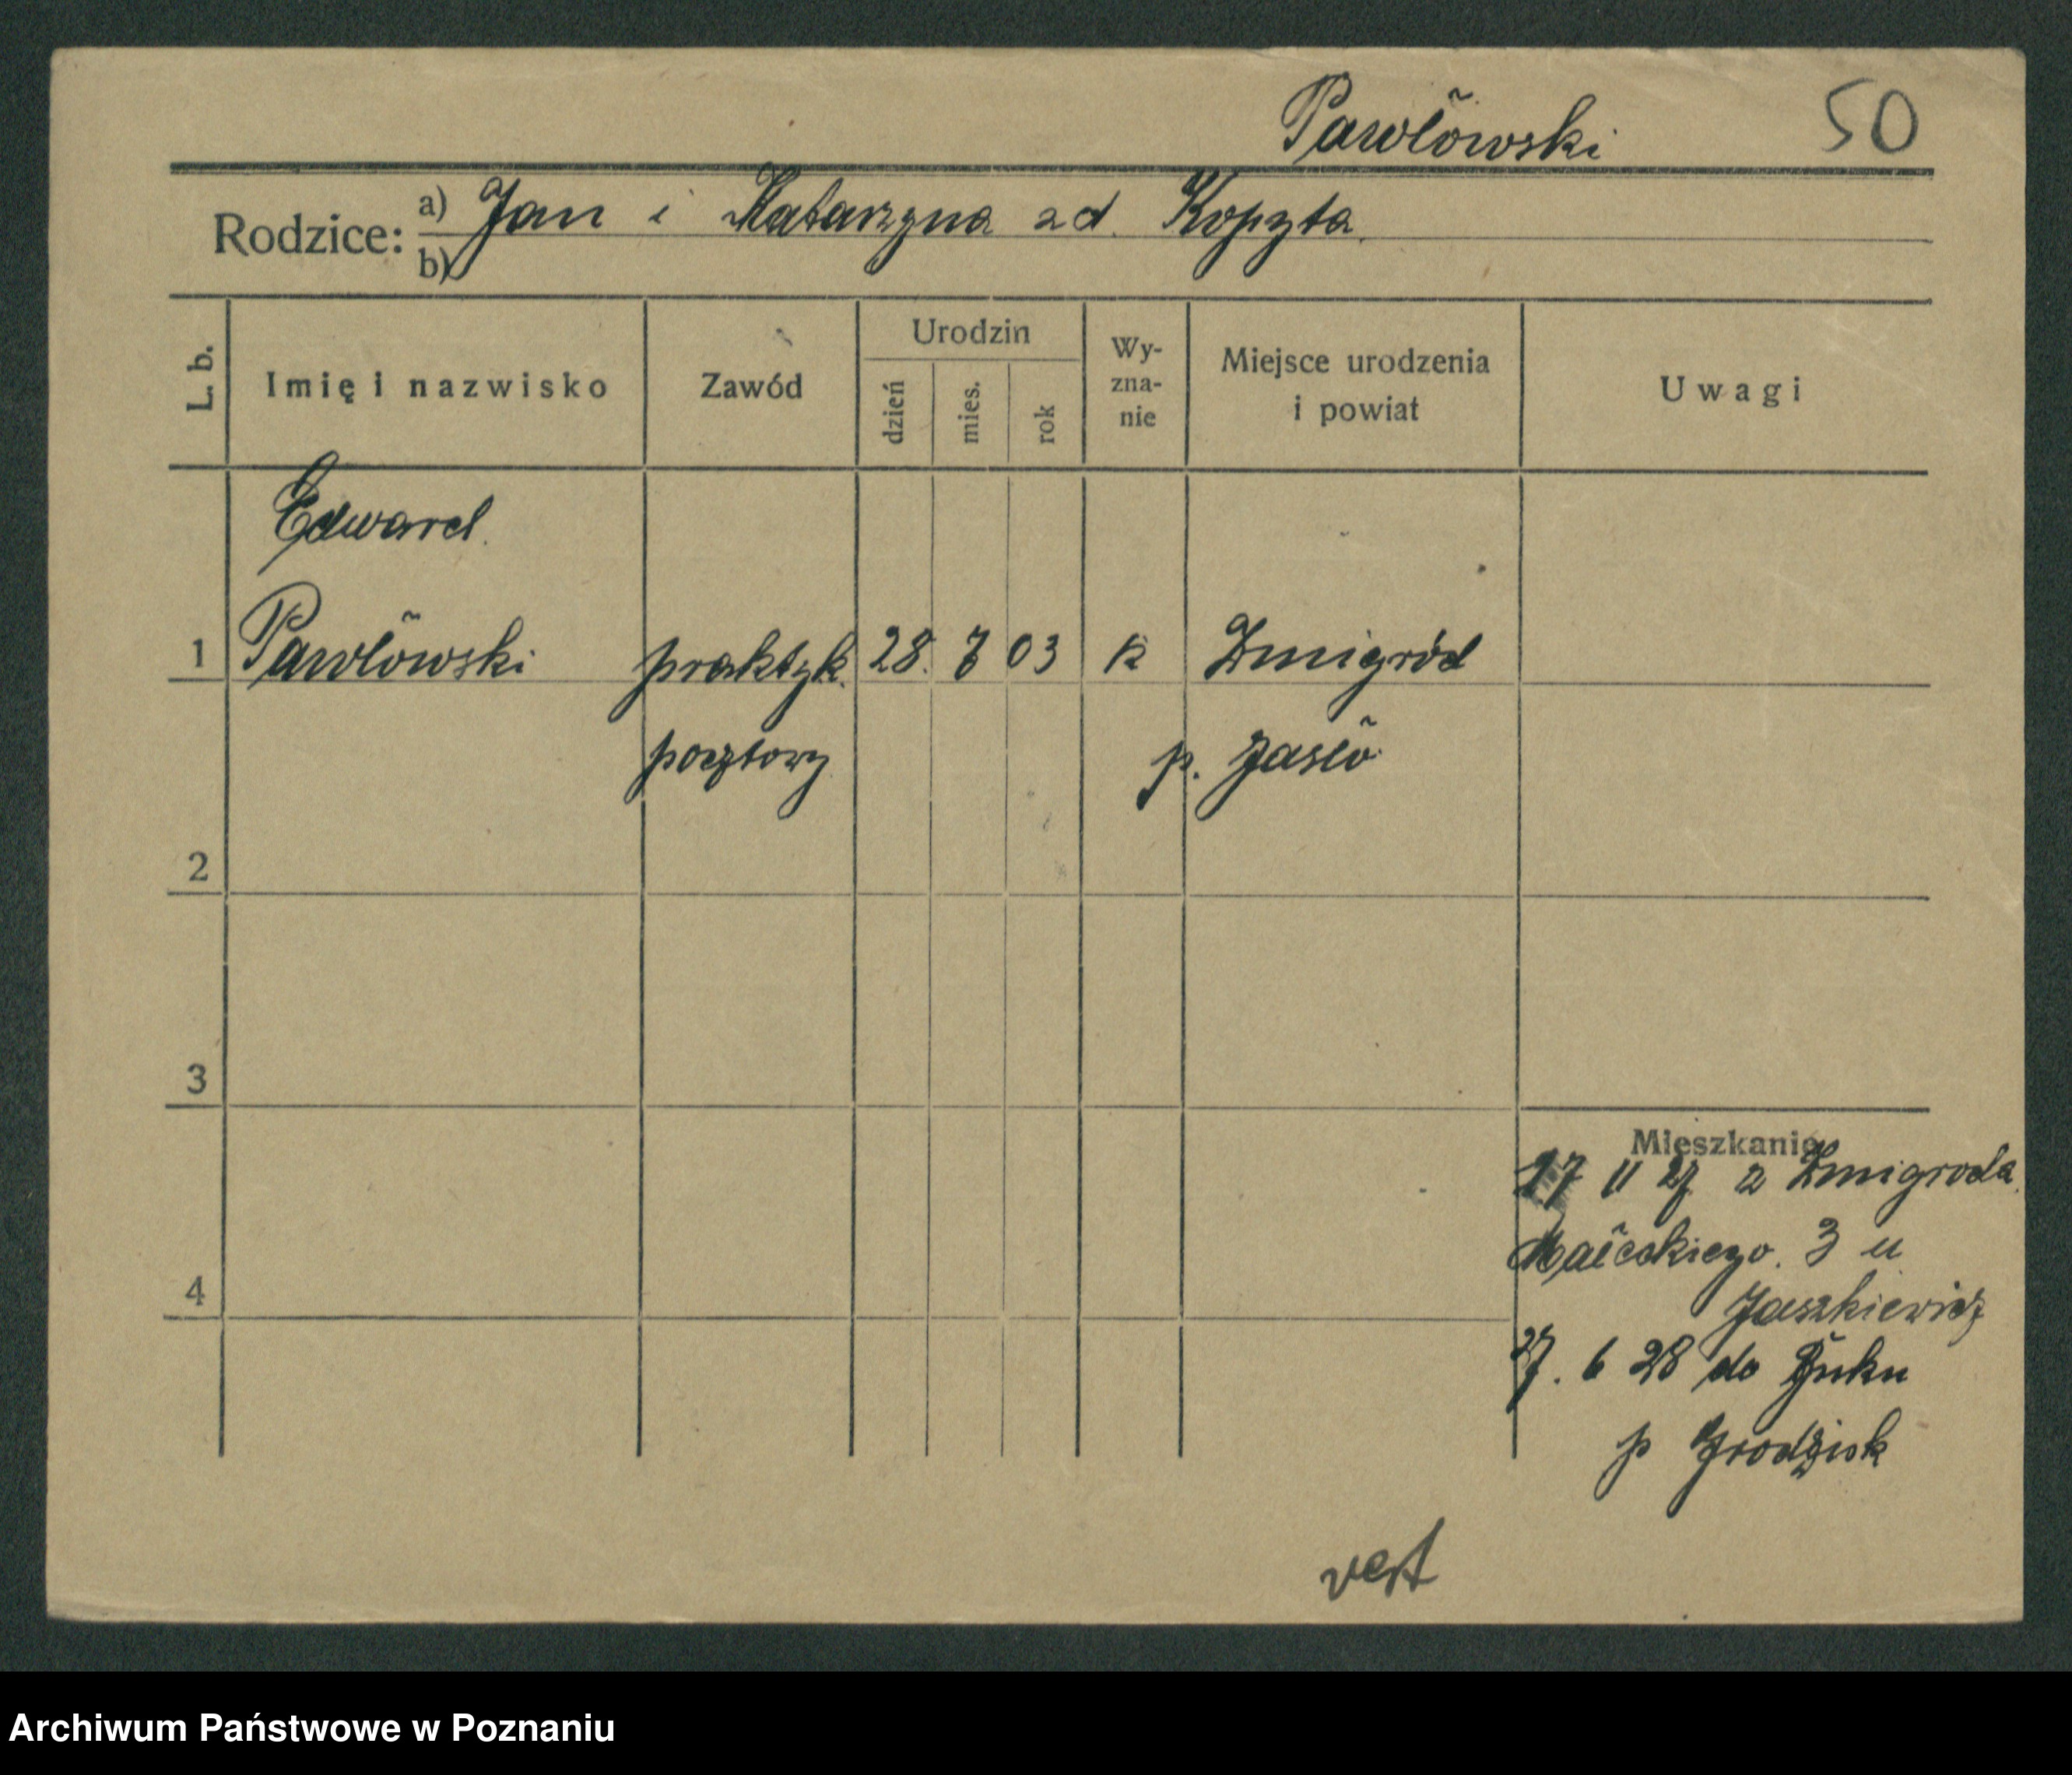 Pawłowski 50
Rodzice: a) Jan i Katarzyna zd. Kopyta.
b)
L. b. Imię i nazwisko Zawód Urodzin dzień mies. rok Wy-zna-nie Miejsce urodzenia i powiat Uwagi
Edward.
1 Pawłowski praktyk. 28. 7 03 k Żmigród
pocztowy p. Jasło
2
3
Mieszkanie
17 11 27 z Żmigroda.
Małeckiego. 3 u
4
Jaszkiewicz
27. 6 28 do Buku
p Grodzisk
vert
Archiwum Państwowe w Poznaniu